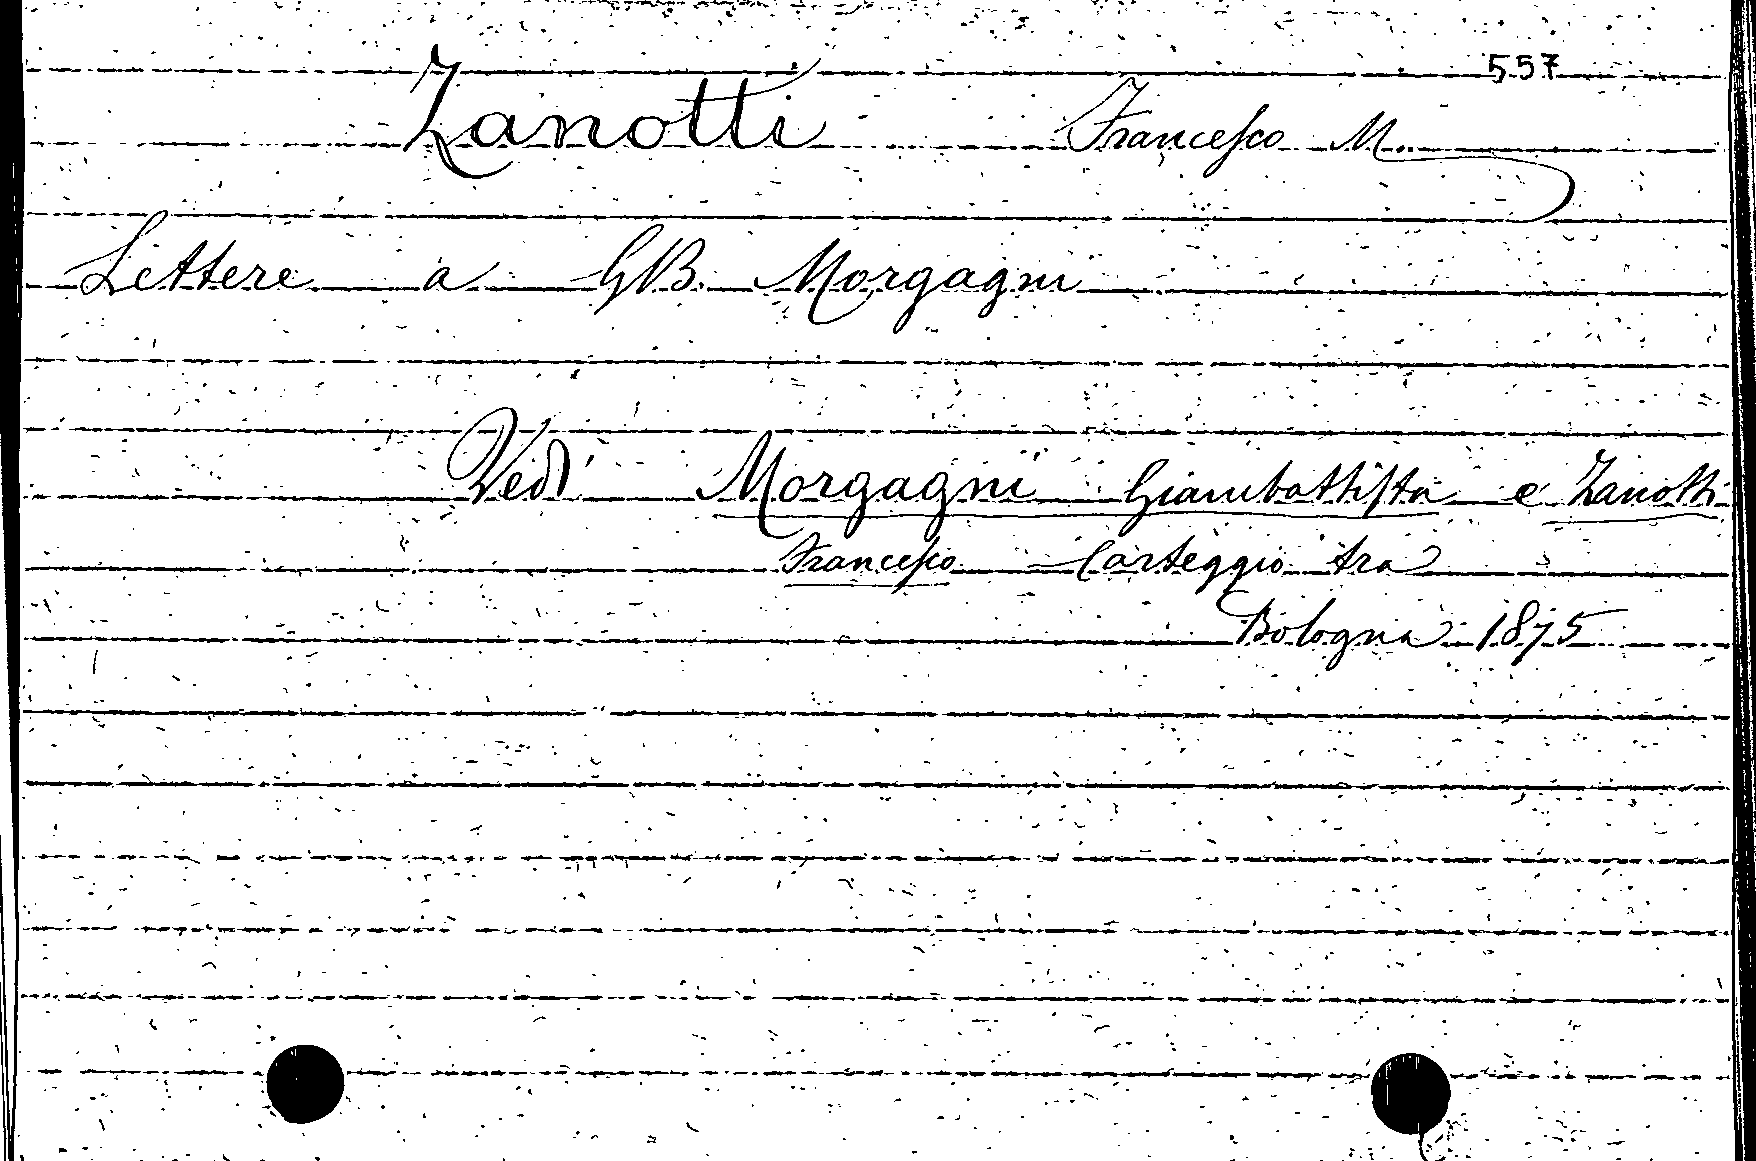 557
Zanotti Francesco M.
Lettere a GB. Morgagni
Vedi Morgagni Giambattista e Zanotti
Francesco Carteggio tra
Bologna 1875